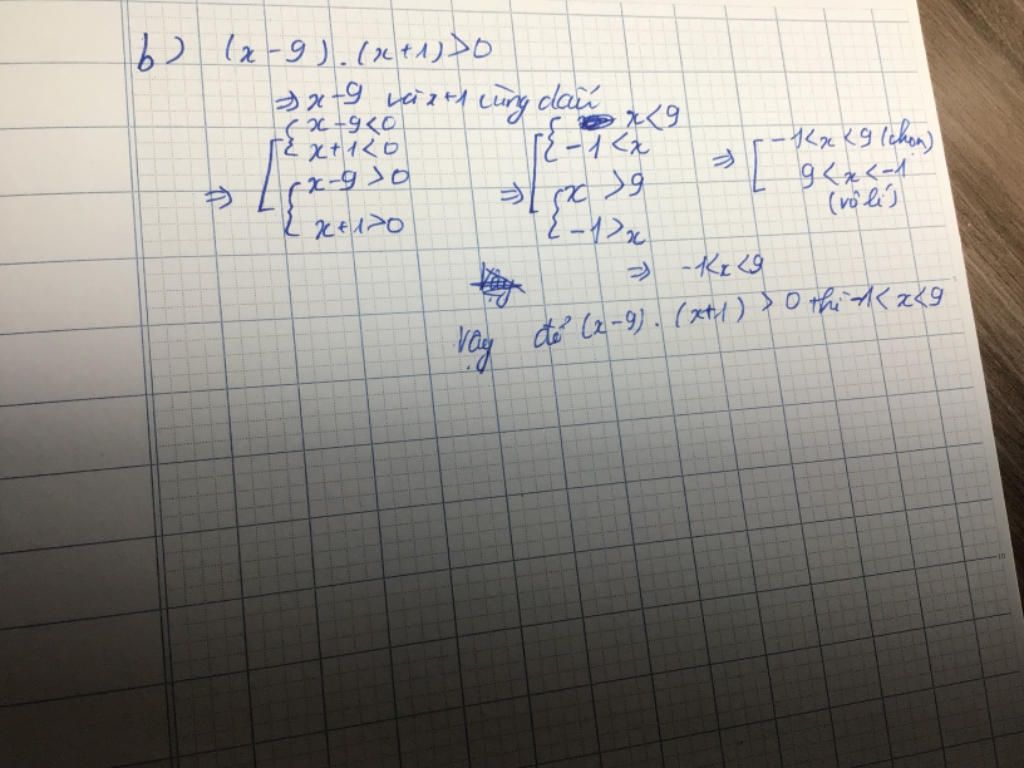 b) (x-9).(x+1)>0
⇒ x-9 và x+1 cùng dấu
⇒ [ { x-9<0
x+1<0
{ x-9>0
x+1>0
⇒ [ { x<9
-1<x
{ x>9
-1>x
⇒ [ -1<x<9 (chọn)
9<x<-1
(vô lí)
⇒ -1<x<9
Vậy để (x-9).(x+1)>0 thì -1<x<9